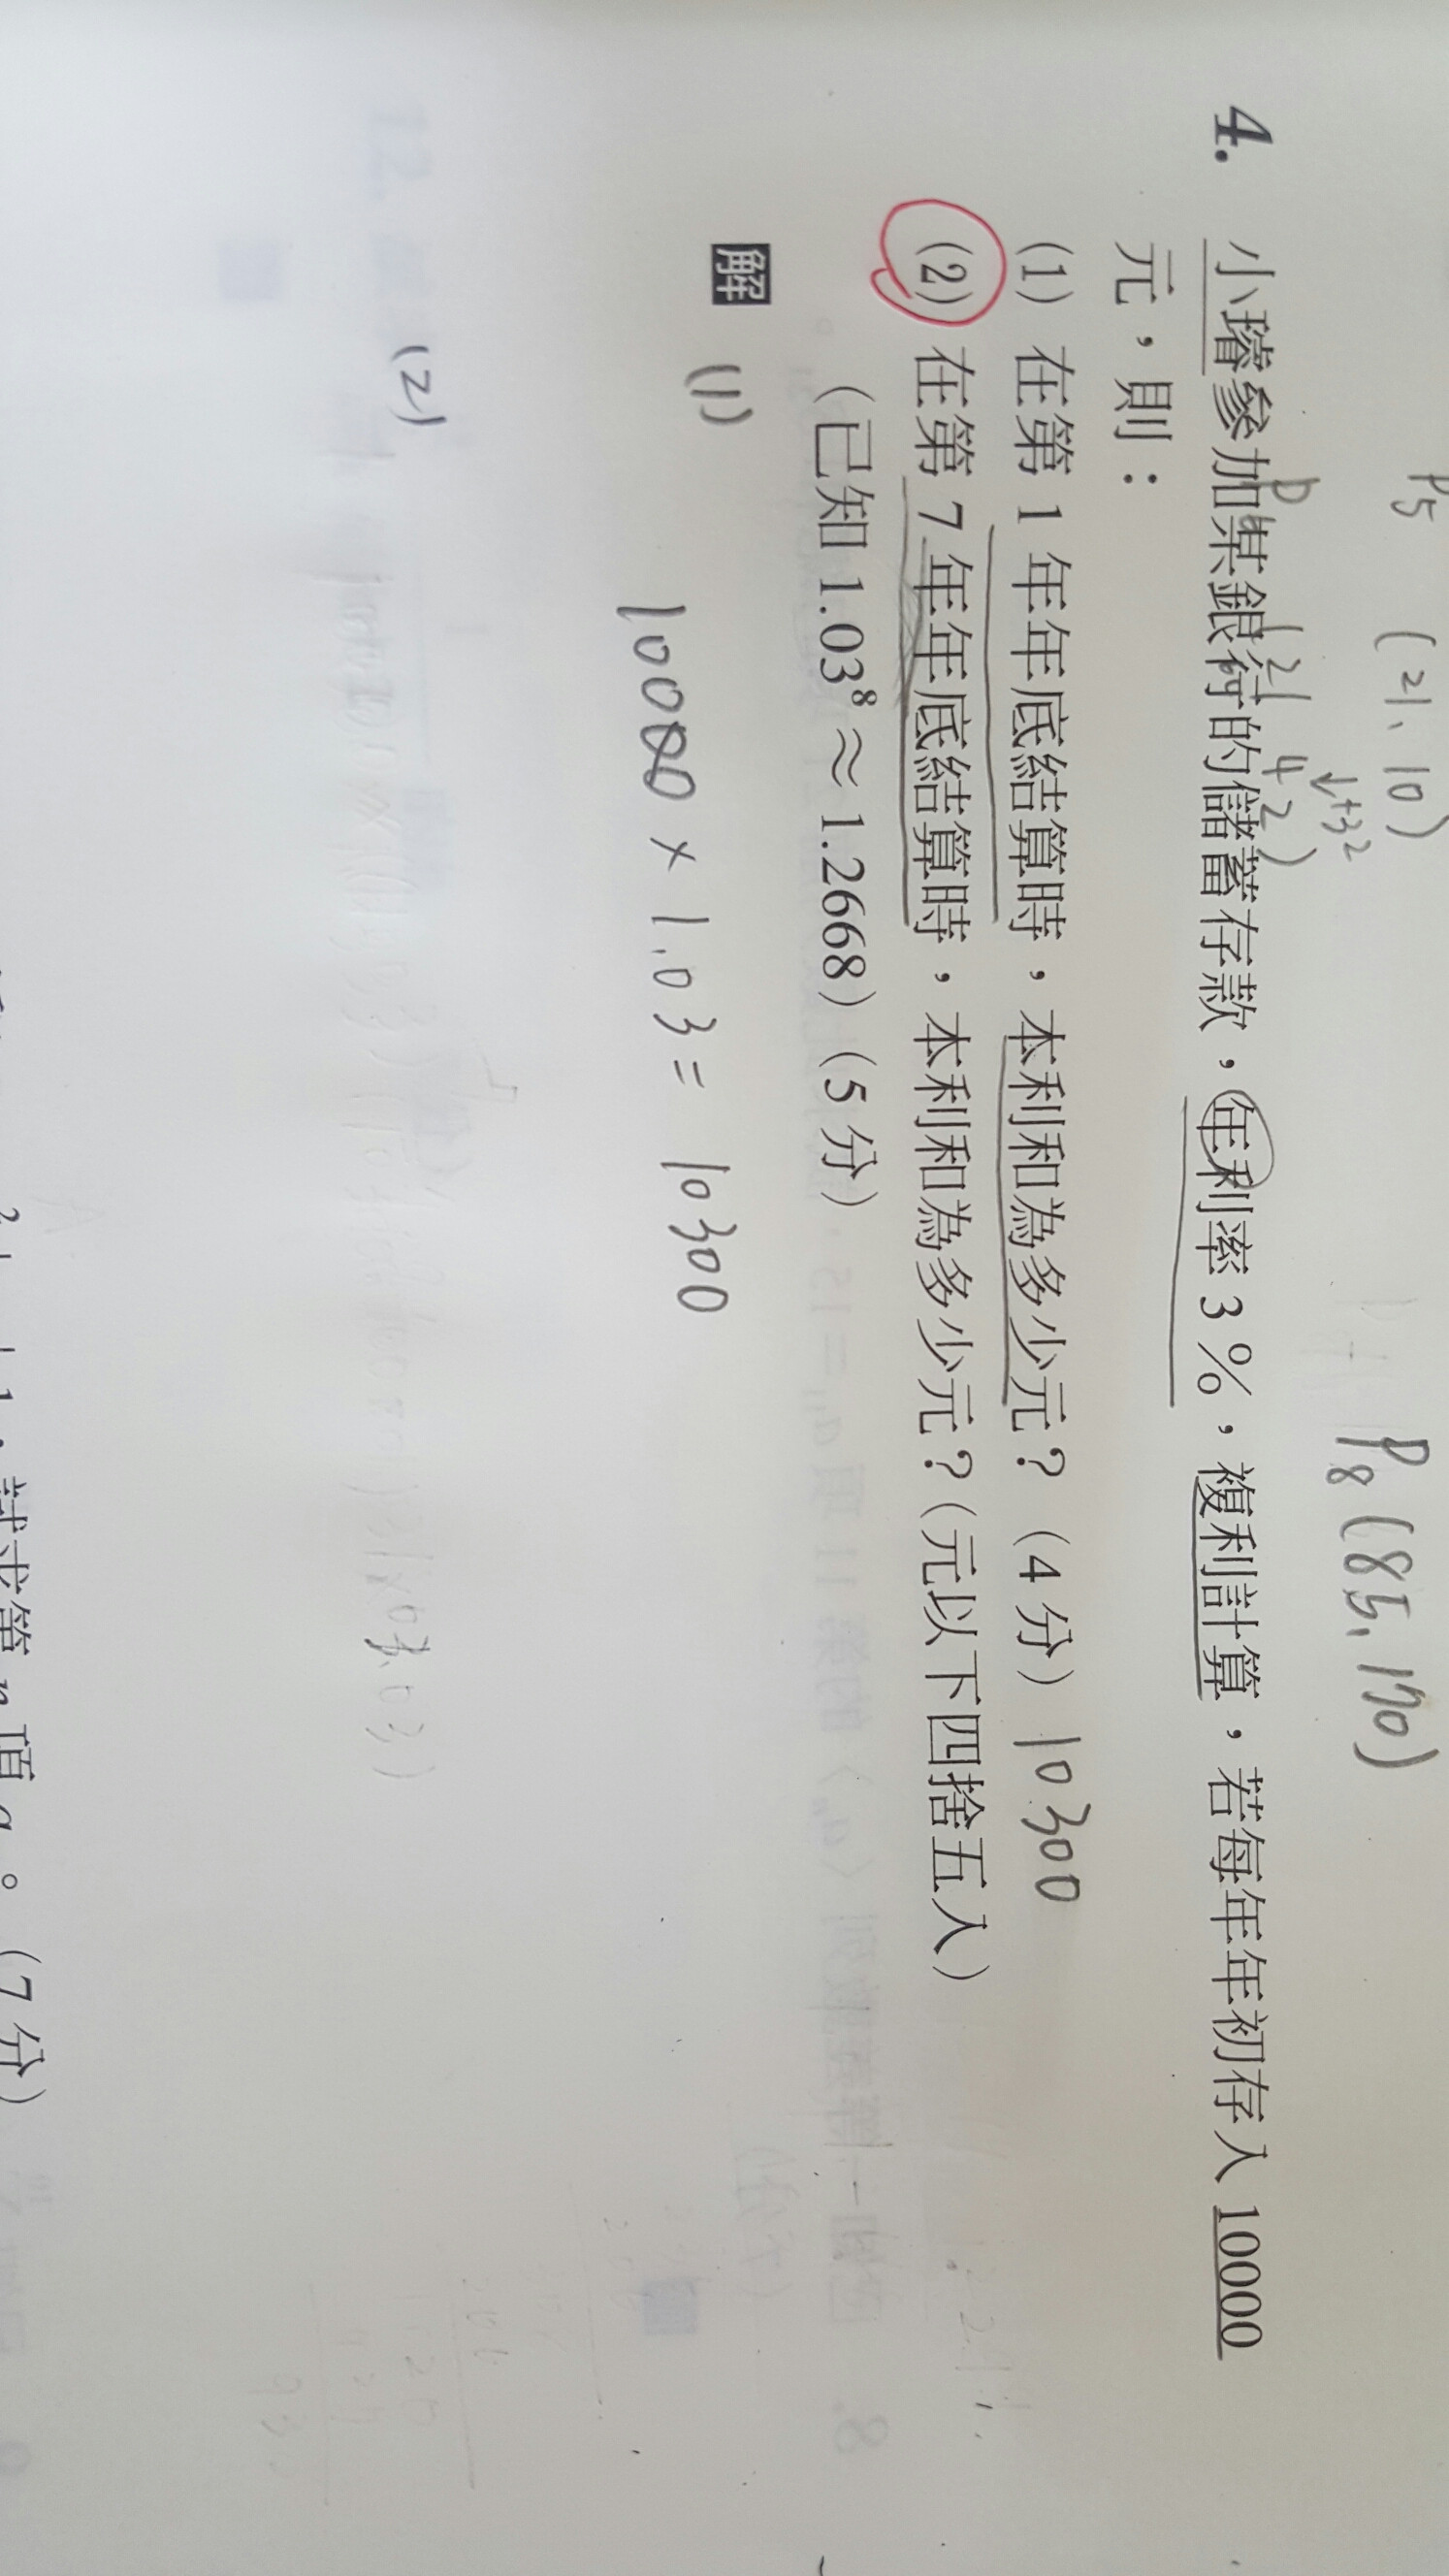 P5 (21, 10) P8 (85, 170)
4. 小璿參加某銀行的儲蓄存款，年利率 3 %，複利計算，若每年年初存入 10000
元，則：
(1) 在第 1 年年底結算時，本利和為多少元？(4 分) 10300
(2) 在第 7 年年底結算時，本利和為多少元？(元以下四捨五入)
(已知 1.03⁸ ≈ 1.2668) (5 分)
解 (1)
10000 × 1.03 = 10300
(2)
試求第 n 項 a 。(7 分)